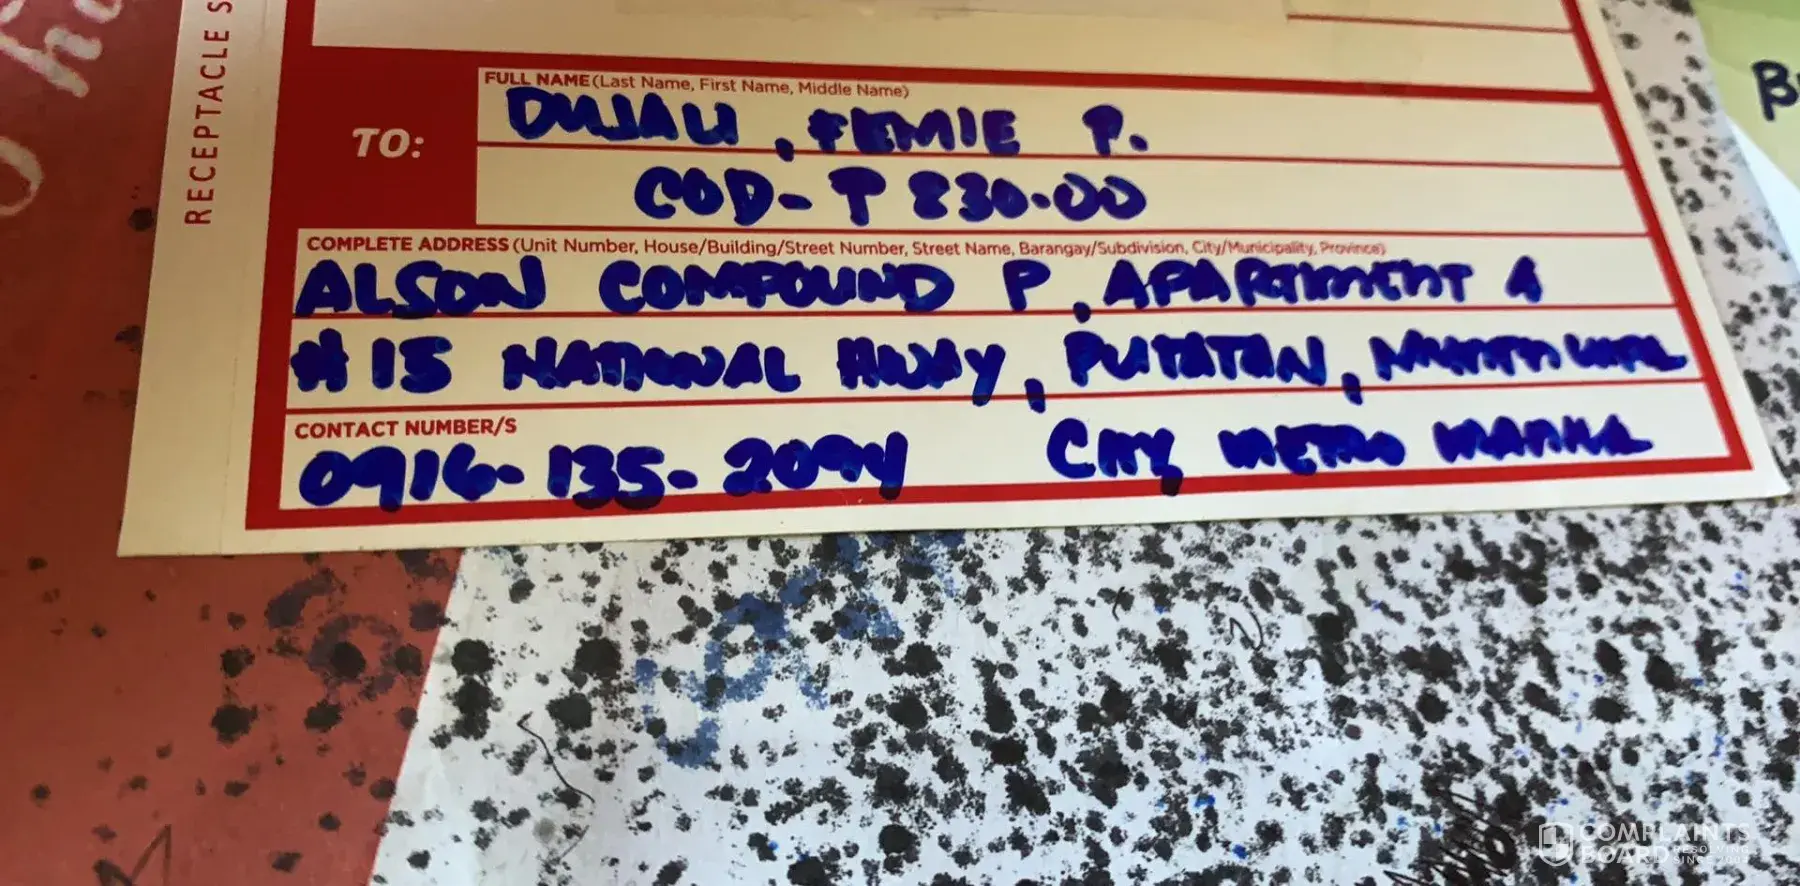 RECEPTACLE S
FULL NAME (Last Name, First Name, Middle Name)
TO:
DUJALI, FEMIE P.
COD - P 830.00
COMPLETE ADDRESS (Unit Number, House/Building/Street Number, Street Name, Barangay/Subdivision, City/Municipality, Province)
ALSON COMPOUND P, APARTMENT 4
# 15 NATIONAL HWAY, PUTATAN, MUNTINLUPA
CONTACT NUMBER/S
0916-135-2094 CITY METRO MANILA
COMPLAINTS
BOARD RESOLVING
SINCE 2004